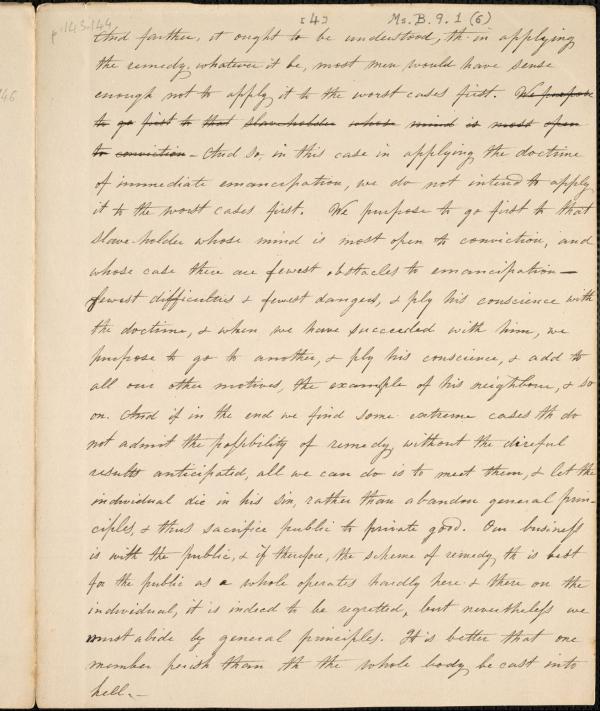 p. 143-144 [4] Ms. B. 9. 1 (6)
46
And farther, it ought to be understood, th. in applying
the remedy, whatever it be, most men would have sense
enough not to apply it to the worst cases first. We purpose
to go first to that slaveholder whose mind is most open
to conviction – And so, in this case in applying the doctrine
of immediate emancipation, we do not intend to apply
it to the worst cases first. We purpose to go first to that
slave-holder whose mind is most open to conviction, and
whose case there are fewest obstacles to emancipation —
fewest difficulties & fewest dangers, & ply his conscience with
the doctrine, & when we have succeeded with him, we
purpose to go to another, & ply his conscience, & add to
all our other motives, the example of his neighbour, & so
on. And if in the end we find some extreme cases th do
not admit the possibility of remedy without the direful
results anticipated, all we can do is to meet them, & let the
individual die in his sin, rather than abandon general prin-
ciples, & thus sacrifice public to private good. Our business
is with the public, & if therefore, the scheme of remedy, th is best
for the public as a whole operates hardly here & there on the
individual, it is indeed to be regretted, but nevertheless we
must abide by general principles. It is better that one
member perish than th the whole body be cast into
hell. –